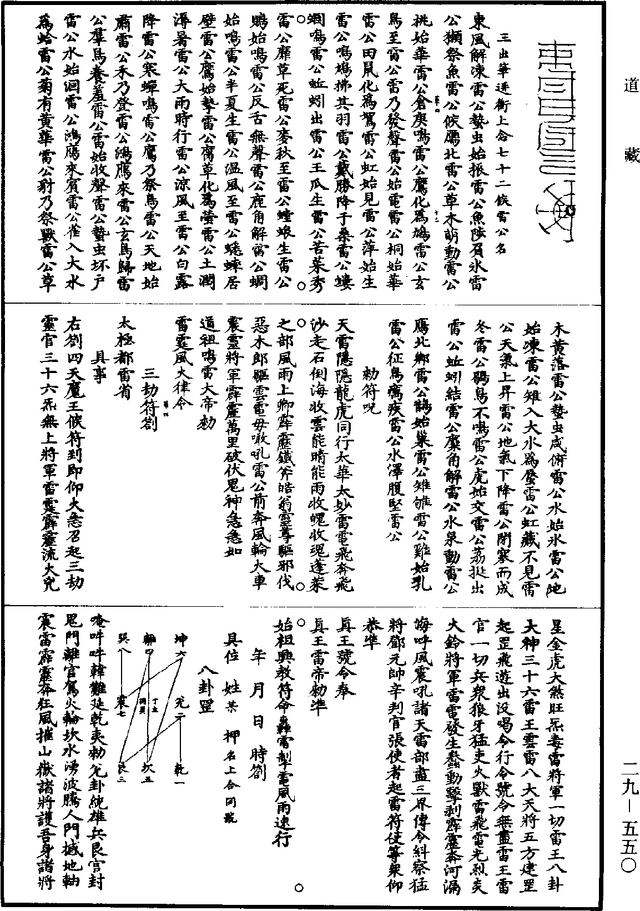 道藏
三出筆逆衝上念七十二候雷公名
東風解凍雷公蟄虫始振雷公魚陟負氷雷
公獺祭魚雷公候鴈北雷公草木萌動雷公
桃始華雷公倉庚鳴雷公鷹化為鳩雷公玄
鳥至雷公雷乃發聲雷公始電雷公桐始華
雷公田鼠化為鴽雷公虹始見雷公萍始生
雷公鳴鳩拂其羽雷公戴勝降于桑雷公螻
蟈鳴雷公蚯蚓出雷公王瓜生雷公苦菜秀
雷公靡草死雷公麥秋至雷公螳螂生雷公
鵙始鳴雷公反舌無聲雷公鹿角解雷公蜩
始鳴雷公半夏生雷公溫風至雷公蟋蟀居
壁雷公鷹始摯雷公腐草化為螢雷公土潤
溽暑雷公大雨時行雷公涼風至雷公白露
降雷公寒蟬鳴雷公鷹乃祭鳥雷公天地始
肅雷公禾乃登雷公鴻鴈來雷公玄鳥歸雷
公羣鳥養羞雷公雷始收聲雷公蟄虫坏戶
雷公水始涸雷公鴻鴈來賓雷公雀入大水
為蛤雷公菊有黃華雷公豺乃祭獸雷公草
木黃落雷公蟄虫咸俯雷公水始氷雷公地
始凍雷公雉入大水為蜃雷公虹藏不見雷
公天氣上昇雷公地氣下降雷公閉塞而成
冬雷公鶡鳥不鳴雷公虎始交雷公荔挺出
雷公蚯蚓結雷公麋角解雷公水泉動雷公
鴈北鄉雷公鵲始巢雷公雉雊雷公雞始乳
雷公征鳥癘疾雷公水澤腹堅雷公
勅符呪
天雷隱隱龍虎同行太華太妙雷電飛奔飛
沙走石倒海收雲能晴能雨收魄收魂蓬萊
之部風雨上卿霹靂鐵斧皓翁靈尊驅邪伐
惡木郎驅雲電母噉吼雷公前奔風輪火車
震靈將軍霹靂萬里破伏鬼神急急如
道祖鳴雷大帝勅
雷霆風火律令
三劫符劄
太極都雷省
具事
右劄四天魔王候符到即仰火急召起三劫
靈官三十六炁無上將軍雷霆霹靂流火兇
星金虎大煞旺炁毒雷將軍一切雷王八卦
大神三十六雷王雲雷八大天將五方建罡
起罡飛遊出沒喝令行令號令無盡雷王雷
官一切兵衆狼牙猛吏火獸雷飛電光烈炎
火鈴將軍雷電發生熱動擊剥霹靂奔河渴
海呼風震吼諸天雷部盡三界傳令糾察猛
將鄧元帥辛判官張使者起雷符使等衆仰
恭準
眞王號令奉
眞王雷帝勅準
始祖興教符命轟雷掣電風雨速行
年月日時劄
具位姓某押名上合同號
八卦罡
坤六 兌二 乾一
離四 坎五
巽八 震七 艮三
唵吽吽韓難延乾夷勅兌卦統雄兵艮宮封
鬼門離宮駕火輪坎水湧波騰人門撼地軸
震雷霹靂奔狂風摧山嶽諸將護吾身諸將
二九—五五〇